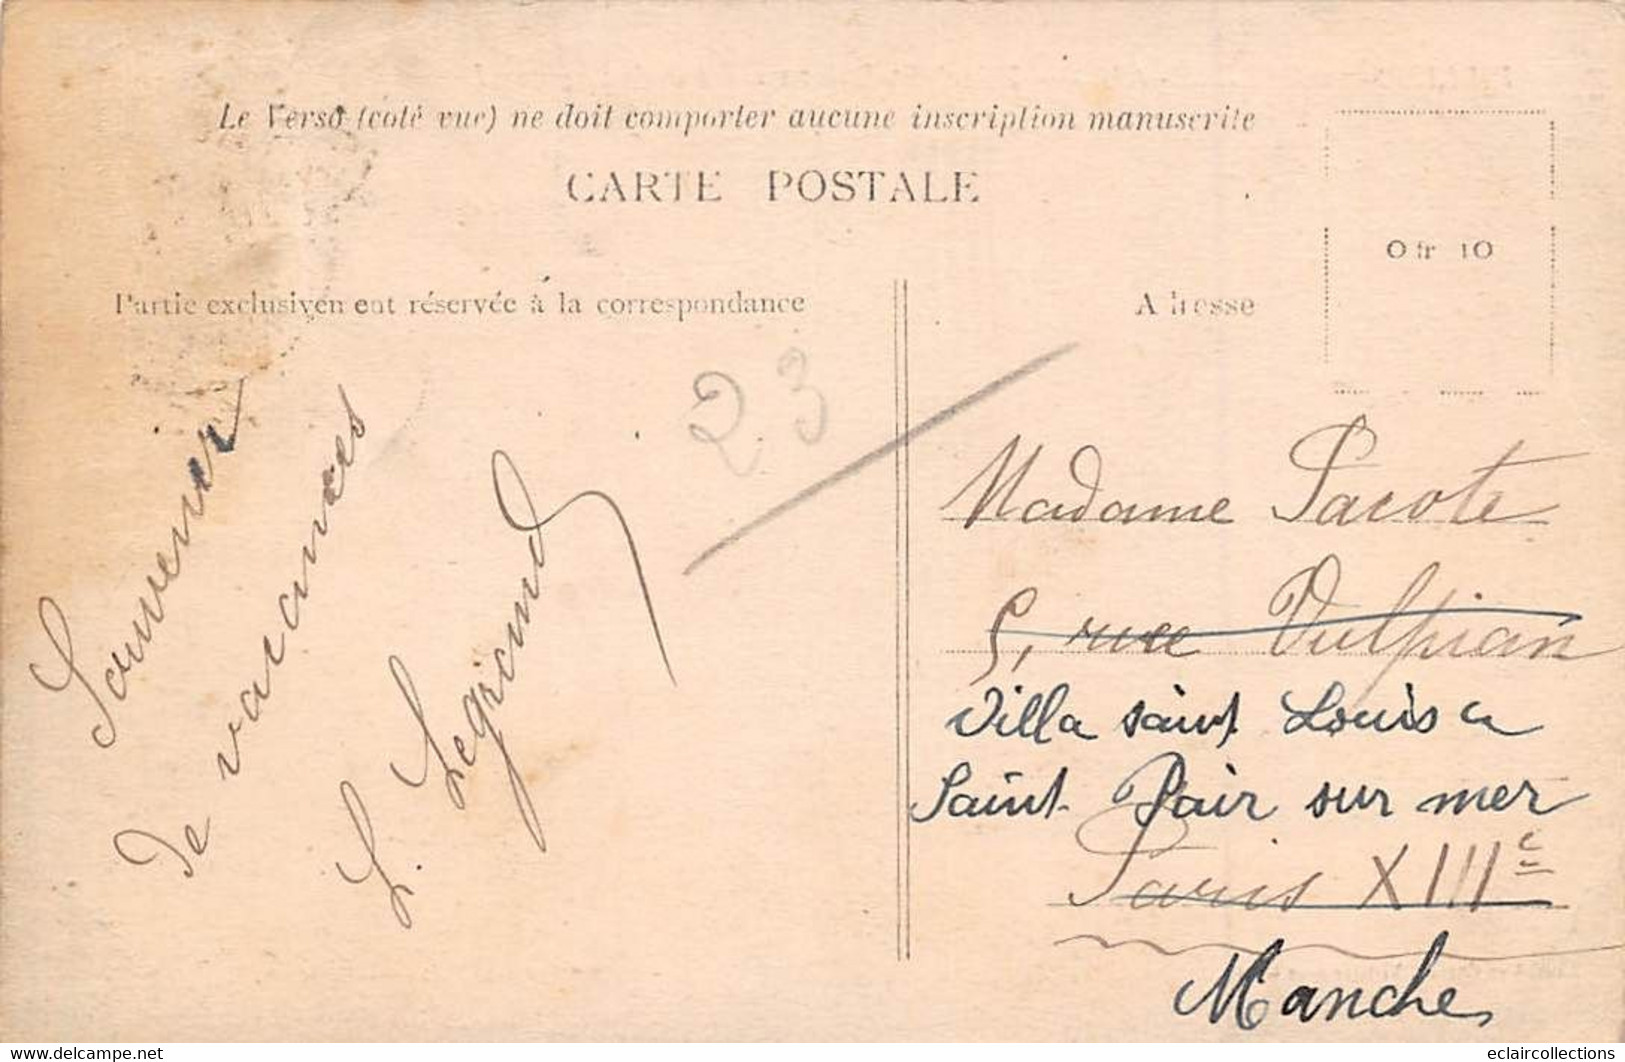 Le Verso (coté vue) ne doit comporter aucune inscription manuscrite
CARTE POSTALE
0 fr 10
Partie exclusivem ent réservée à la correspondance
Adresse
23
Souvenir
de vacances
L. Legrand
Madame Pacote
5, rue Vulpian
Villa saint Louis
Saint Pair sur mer
Paris XIIIe
Manche
eclaircollections